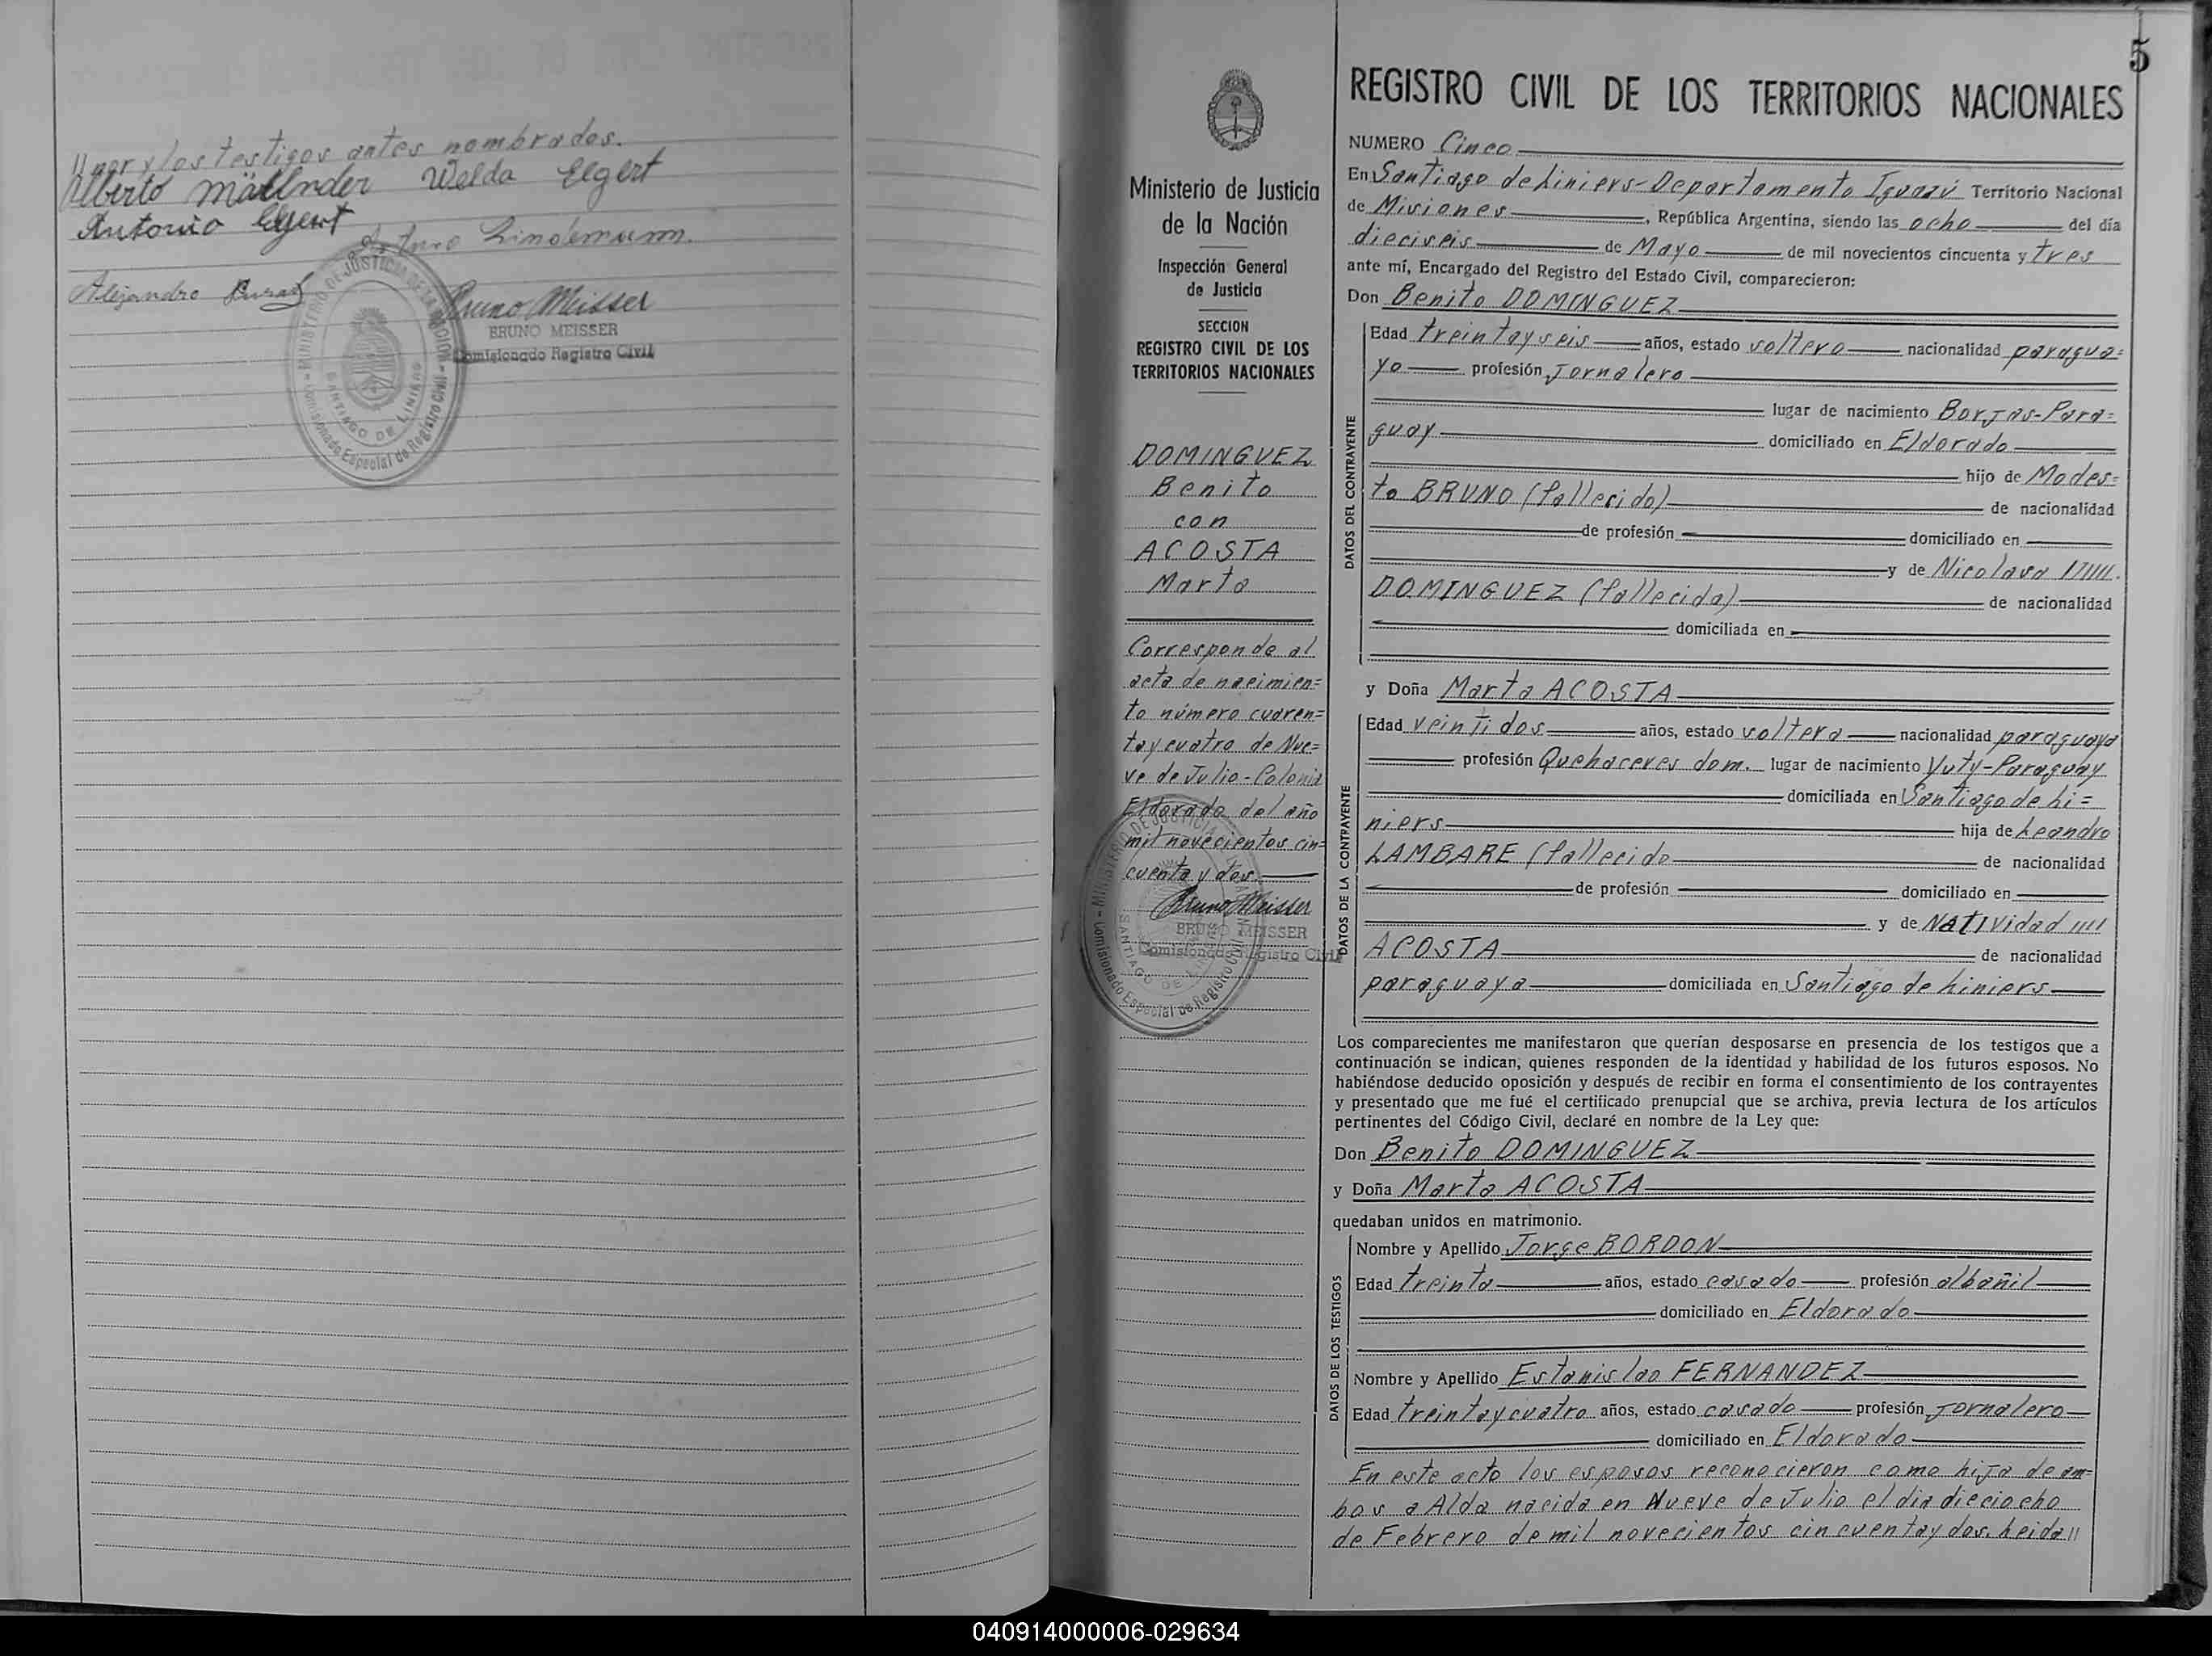 y los testigos antes nombrados.
Alberto Welda Elgert
Antonio Elgert
Arturo Lindemann.
Alejandro
Bruno Meisser
BRUNO MEISSER
Comisionado Registro Civil
MINISTERIO DE JUSTICIA DE LA NACION
SANTIAGO DE LINIERS
Comisionado Especial de Registro Civil
5
Ministerio de Justicia
de la Nación
Inspección General
de Justicia
SECCION
REGISTRO CIVIL DE LOS
TERRITORIOS NACIONALES
DOMINGUEZ
Benito
con
ACOSTA
Marta
Corresponde al
acta de nacimien=
to número cuaren=
tay cuatro de Nue=
ve de Julio-Colonia
Eldorado del año
mil novecientos cin=
cuenta y dos.
Bruno Meisser
BRUNO MEISSER
Comisionado Registro Civil
MINISTERIO DE JUSTICIA DE LA NACION
SANTIAGO DE LINIERS
Comisionado Especial de Registro Civil
REGISTRO CIVIL DE LOS TERRITORIOS NACIONALES
NUMERO Cinco
En Santiago de Liniers-Departamento Iguazú Territorio Nacional
de Misiones, República Argentina, siendo las ocho del día
dieciseis de Mayo de mil novecientos cincuenta y tres
ante mí, Encargado del Registro del Estado Civil, comparecieron:
Don Benito DOMINGUEZ
DATOS DEL CONTRAYENTE
Edad treintayseis años, estado soltero nacionalidad paragua=
yo profesión Jornalero
lugar de nacimiento Borjas-Para=
guay domiciliado en Eldorado
hijo de Modes=
to BRUNO (fallecido) de nacionalidad
de profesión domiciliado en
y de Nicolasa
DOMINGUEZ (fallecida) de nacionalidad
domiciliada en
y Doña Marta ACOSTA
DATOS DE LA CONTRAYENTE
Edad veintidos años, estado soltera nacionalidad paraguaya
profesión Quehaceres dom. lugar de nacimiento Yuty-Paraguay
domiciliada en Santiago de Li=
niers hija de Leandro
LAMBARE (fallecido de nacionalidad
de profesión domiciliado en
y de Natividad
ACOSTA de nacionalidad
paraguaya domiciliada en Santiago de Liniers
Los comparecientes me manifestaron que querían desposarse en presencia de los testigos que a
continuación se indican, quienes responden de la identidad y habilidad de los futuros esposos. No
habiéndose deducido oposición y después de recibir en forma el consentimiento de los contrayentes
y presentado que me fué el certificado prenupcial que se archiva, previa lectura de los artículos
pertinentes del Código Civil, declaré en nombre de la Ley que:
Don Benito DOMINGUEZ
y Doña Marta ACOSTA
quedaban unidos en matrimonio.
DATOS DE LOS TESTIGOS
Nombre y Apellido Jorge BORDON
Edad treinta años, estado casado profesión albañil
domiciliado en Eldorado
Nombre y Apellido Estanislao FERNANDEZ
Edad treintaycuatro años, estado casado profesión Jornalero
domiciliado en Eldorado
En este acto los esposos reconocieron como hija de am=
bos a Alda nacida en Nueve de Julio el dia dieciocho
de Febrero de mil novecientos cincuentay dos. Leida//
040914000006-029634